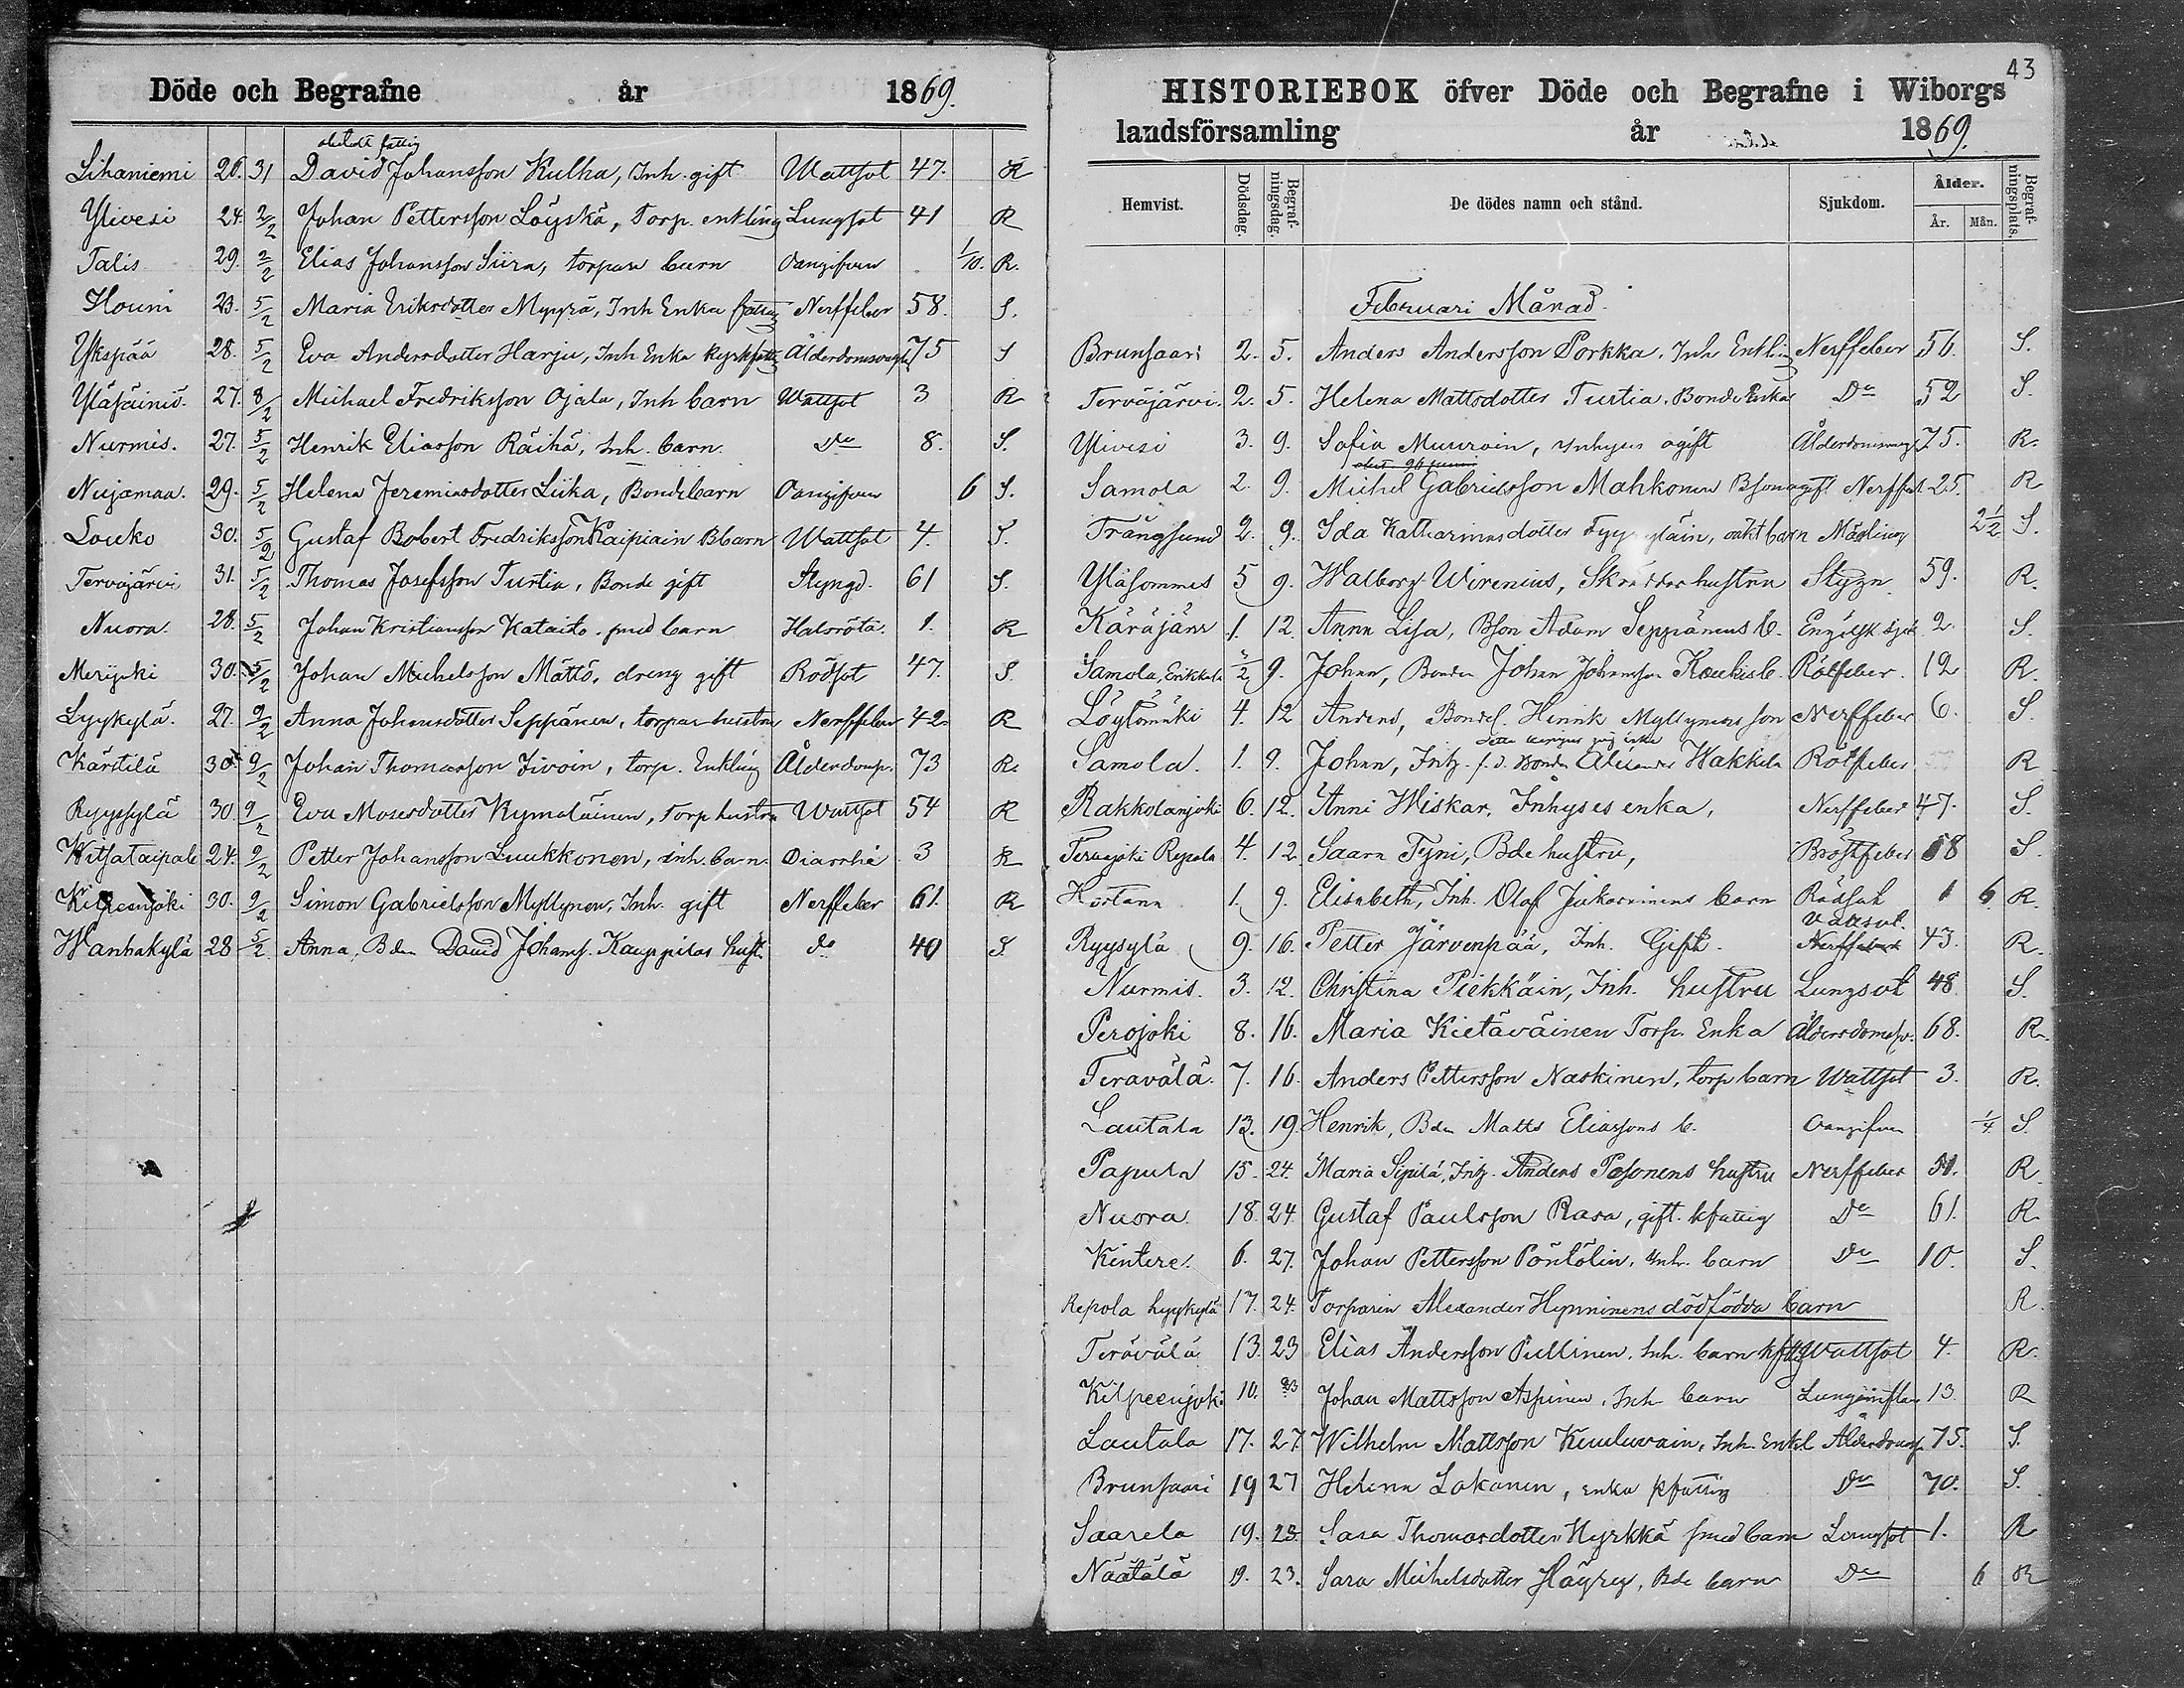 Döde och Begrafne år 1869.
Lihaniemi 26. 31 David Johansson Kulha, Inh. gift Wattsot 47. R
Ylivesi 24. 2/2 Johan Pettersson Löyskä, Torp. enkling Lungsot 41 R
Talis 29. 2/2 Elias Johansson Siira, torpare barn Oangifven 1/10. R.
Houni 23. 5/2 Maria Eriksdotter Myyrä, Inh Enka fattig Nerffeber 58. S.
Ykspää 28. 5/2 Eva Andersdotter Harju, Inh Enka 75 S
Yläsäiniö. 27. 8/2 Michael Fredriksson Ojala, Inh barn Wattsot 3 R
Nurmis. 27. 5/2 Henrik Eliasson Räihä, Inh. barn. Do 8. S.
Nujamaa. 29. 5/2 Helena Jeremiasdotter Liika, Bondebarn Oangifven 6 S.
Louko 30. 5/2 Gustaf Robert Fredriksson Kaipiain Bbarn Wattsot 4. S.
Tervajärvi 31. 5/2 Thomas Josefsson Turtia, Bonde gift Styngd. 61 S.
Nuora. 28. 5/2 Johan Kristiansson Kataisto. smed barn Halsröta. 1. R
Merijoki 30. 5/2 Johan Michelsson Mättö, dreng gift Rödsot 47. S.
Lyykylä. 27. 9/2 Anna Johansdotter Seppänen, torpar hustru Nerffeber 42 R
Kärstilä 30. 9/2 Johan Thomasson Zivoin, torp. Enkling Ålderdomsv. 73 R.
Ryyssylä 30. 9/2 Eva Mosesdotter Kymäläinen, Torp hustru Wattsot 54 R
Witsataipale 24. 9/2 Petter Johansson Luukkonen, inh. barn. Diarrhé 3 R
Kilpeenjoki 30. 9/2 Simon Gabrielsson Myllynen, Inh. gift Nerffeber 61. R
Wanhakylä 28 5/2 Anna, Bdn David Johanss. Kauppilas hust. do 40 S.
43
HISTORIEBOK öfver Döde och Begrafne i Wiborgs
landsförsamling år 1869.
Hemvist. Dödsdag. Begrafningsdag. De dödes namn och stånd. Sjukdom. Ålder. År. Mån. Begrafningsplats.
Februari Månad.
Brunsaari 2. 5. Anders Andersson Porkka. Inh Enkling Nerffeber 56. S.
Tervajärvi. 2. 5. Helena Mattsdotter Turtia. Bonde Enka Do 52 S.
Ylivesi 3. 9. Sofia Muuroin, Inhyses ogift 75. R.
Samola 2. 9. Michel Gabrielsson Mahkonen Bson ogift Nerffeb. 25. R
Trångsund 2. 9. Ida Katharinasdotter oäkt barn Mässling 2 1/2 S.
Yläsommes 5 9. Walborg Wirenius, Skräddar hustru Styng. 59. R.
Käräjärvi 1. 12. Anna Lisa, Bson Adam Seppänens b. Engelsk sjuk 2. S.
Samola, Erikkala 2/2 9. Johan, Bonden Johan Johansson Koukis b. Rötfeber. 12 R.
Löytömäki 4. 12 Anders, Bondes. Henrik Myllynens son Nerffeber 6. S.
Samola. 1. 9. Johan, Inhy. f. d. Bonden Alexander Hakkila Rötfeber R
Rakkolanjoki 6. 12. Anni Wiskar, Inhyses enka, Nerffeber 47. S.
Tervajoki Repola 4. 12 Saara Tyni, Bde hustru, Bröstfeber 58 S.
1. 9. Elisabeth, Inh. Olof Jukarainens barn Rödsot 1 6. R.
Ryysylä 9. 16. Petter Järvenpää, Inh. Gift. Vattsot. Nerffeber 43. R.
Nurmis. 3. 12. Christina Piekkäin, Inh. hustru Lungsot 48 S.
Perojoki 8. 16. Maria Kietäväinen Torp. Enka Ålderdomssv. 68. R.
Terävälä. 7. 16. Anders Pettersson Naskinen, torp barn Wattsot 3. R.
Lautala 13. 19. Henrik, Bdn Matts Eliassons b. Oangifven 1/4. S.
Papula 15. 24. Maria Sipilä, Inhy. Anders Posonens hustru Nerffeber 51. R.
Nuora. 18. 24. Gustaf Paulsson Rasa, gift. kfattig Do 61. R
Kintere. 6. 27. Johan Pettersson Pöntölin, Inh. barn Do 10. S.
Repola Lyykylä 17. 24. Torparen Alexander Hynninens dödfödda barn R.
Terävälä 13. 23 Elias Andersson Pullinen. Inh. barn kfttig Wattsot 4. R.
Kilpeenjoki 10. 23 Johan Mattsson Aspinen, Inh barn Lunginflam 13. R
Lautala 17. 27. Wilhelm Mattsson Kuuluvain, Inh. Enkl Ålderdomsv. 75. S.
Brunsaari 19 27 Helena Lakanen, enka kfattig Do 70. S.
Saarela 19. 23. Sara Thomasdotter Hyrkkä smed barn Lungsot 1. R
Näätälä 19. 23. Sara Michelsdotter Häyrey, Bde barn Do 6 R